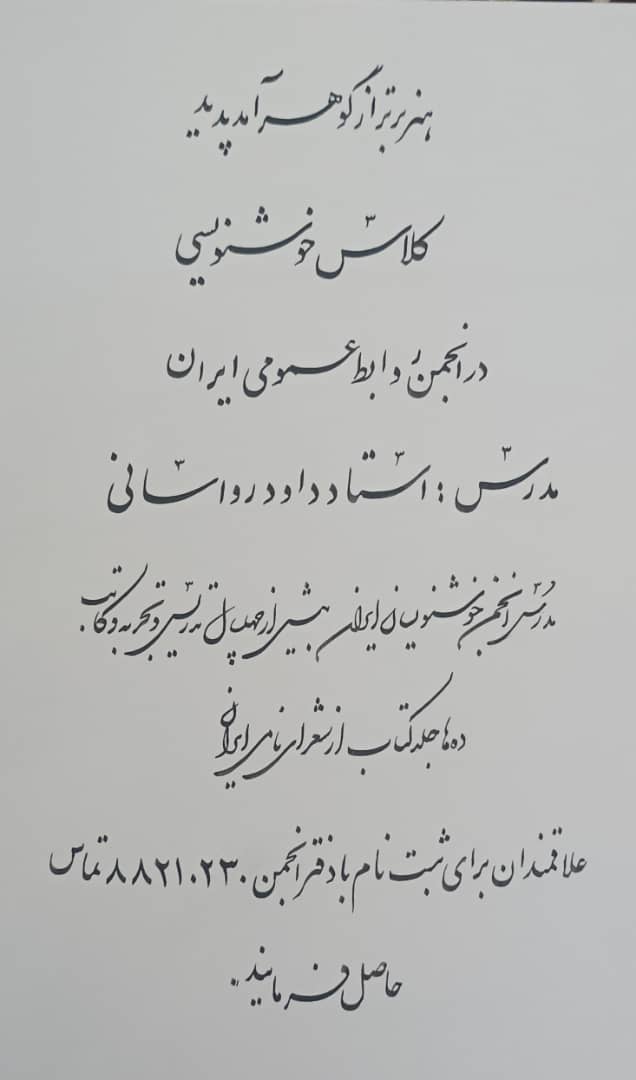 هنر برتر از گوهر آمد پدید
کلاس خوشنویسی
در انجمن روابط عمومی ایران
مدرس : استاد داود رواسانی
مدرس انجمن خوشنویسان ایران بیش از چهل سال تدریس و تجربه و کتابت
ده‌ها جلد کتاب از شعرای نامی ایران
علاقمندان برای ثبت نام با دفتر انجمن ۸۸۲۱۰۲۳۰ تماس
حاصل فرمایند.